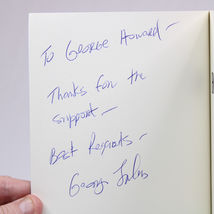 To George Howard –
Thanks for the
support –
Best Regards –
George